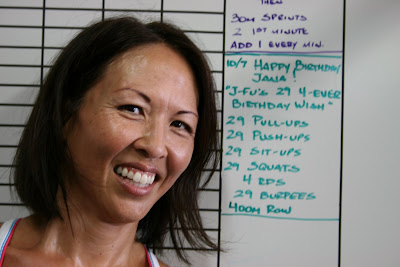 THEN
30M SPRINTS
2 1ST MINUTE
ADD 1 EVERY MIN.
10/7 HAPPY BIRTHDAY
JANA!
"J-FU'S 29 4-EVER
BIRTHDAY WISH"
29 PULL-UPS
29 PUSH-UPS
29 SIT-UPS
29 SQUATS
4 RDS
29 BURPEES
400M ROW